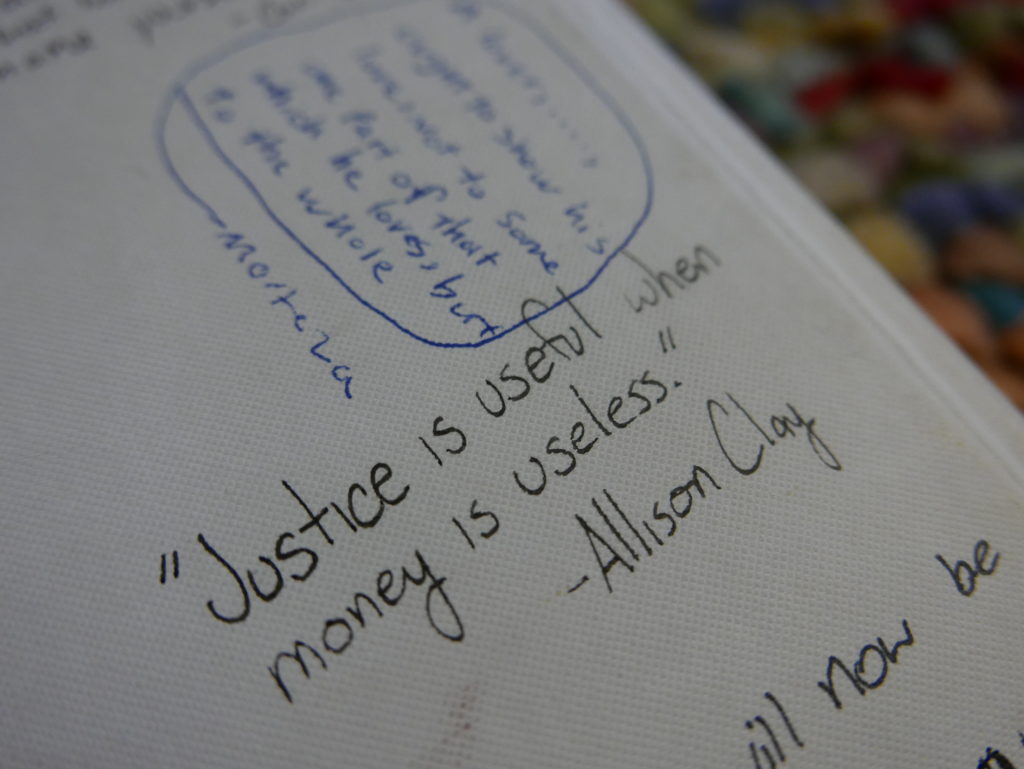 eager to show his
love, not to some
one part of that
which he loves, but
to the whole
- Morteza
"Justice is useful when
money is useless."
- Allison Clay
now be